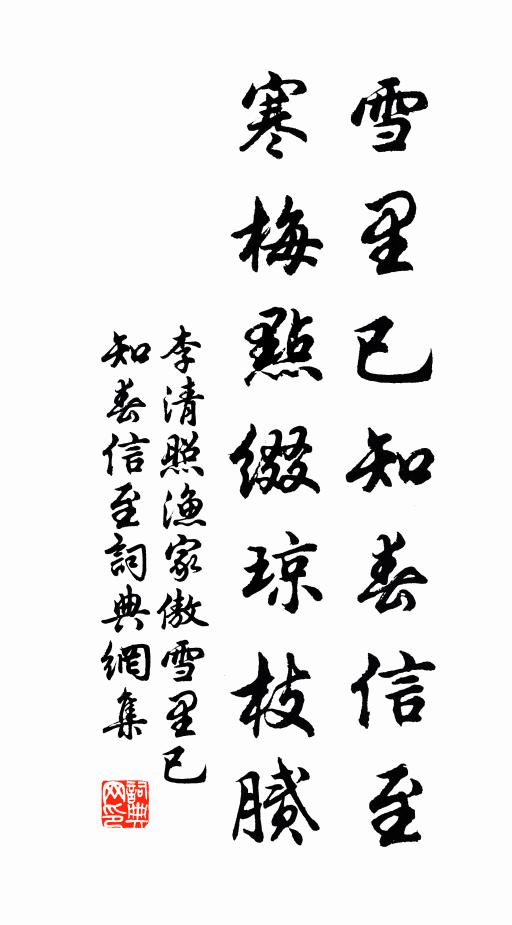 雪里已知春信至
寒梅點綴琼枝膩
李清照漁家傲雪里已
知春信至詞典網集
詞典
网印